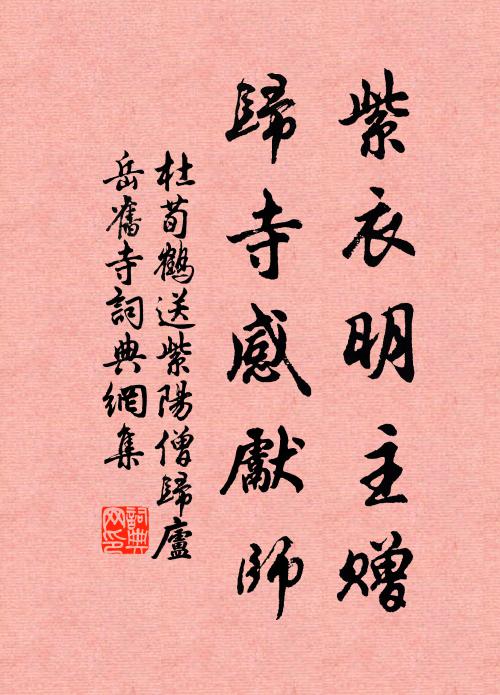 紫衣明主贈
歸寺感獻師
杜荀鶴送紫陽僧歸廬
岳舊寺詞典網集
詞典网印